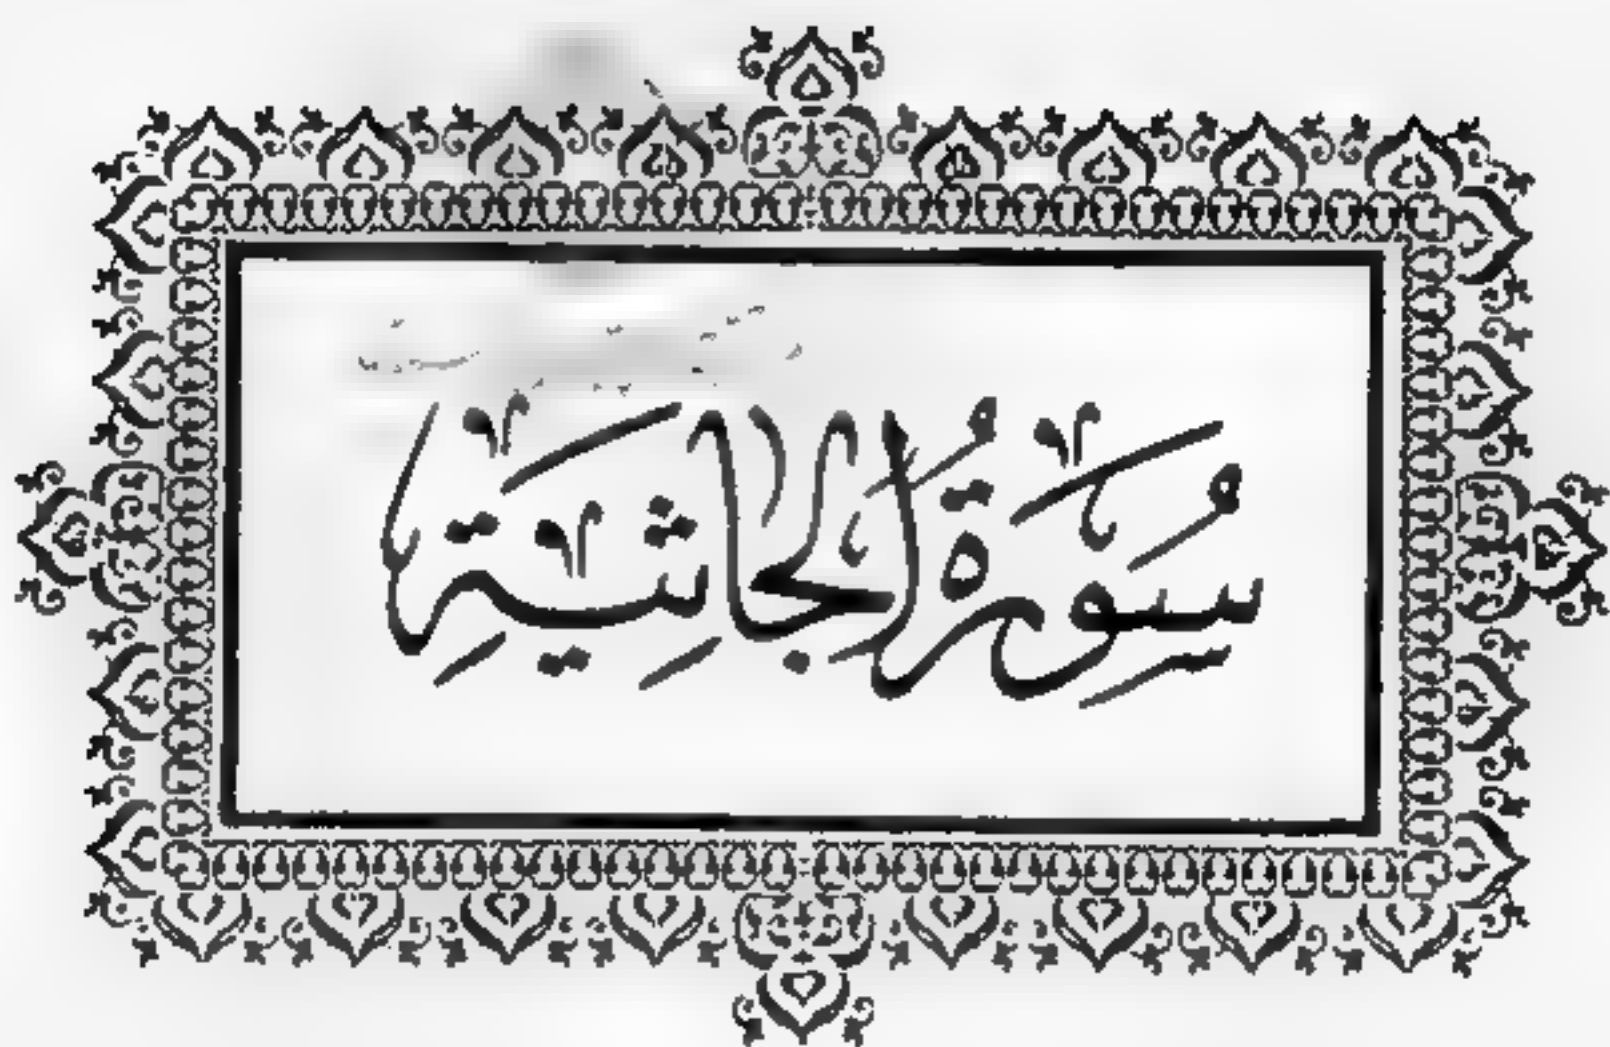 سُورَةُ الجَاثِيَةِ